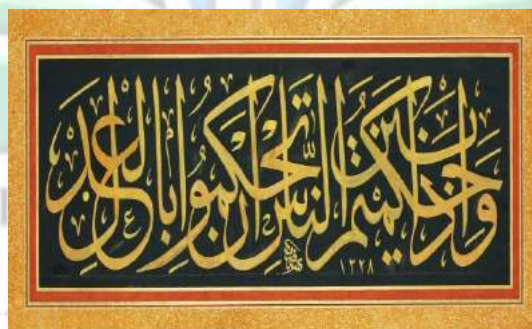 وَإِذَا حَكَمْتُمْ بَيْنَ النَّاسِ أَنْ تَحْكُمُوا بِالْعَدْلِ
١٣٢٨